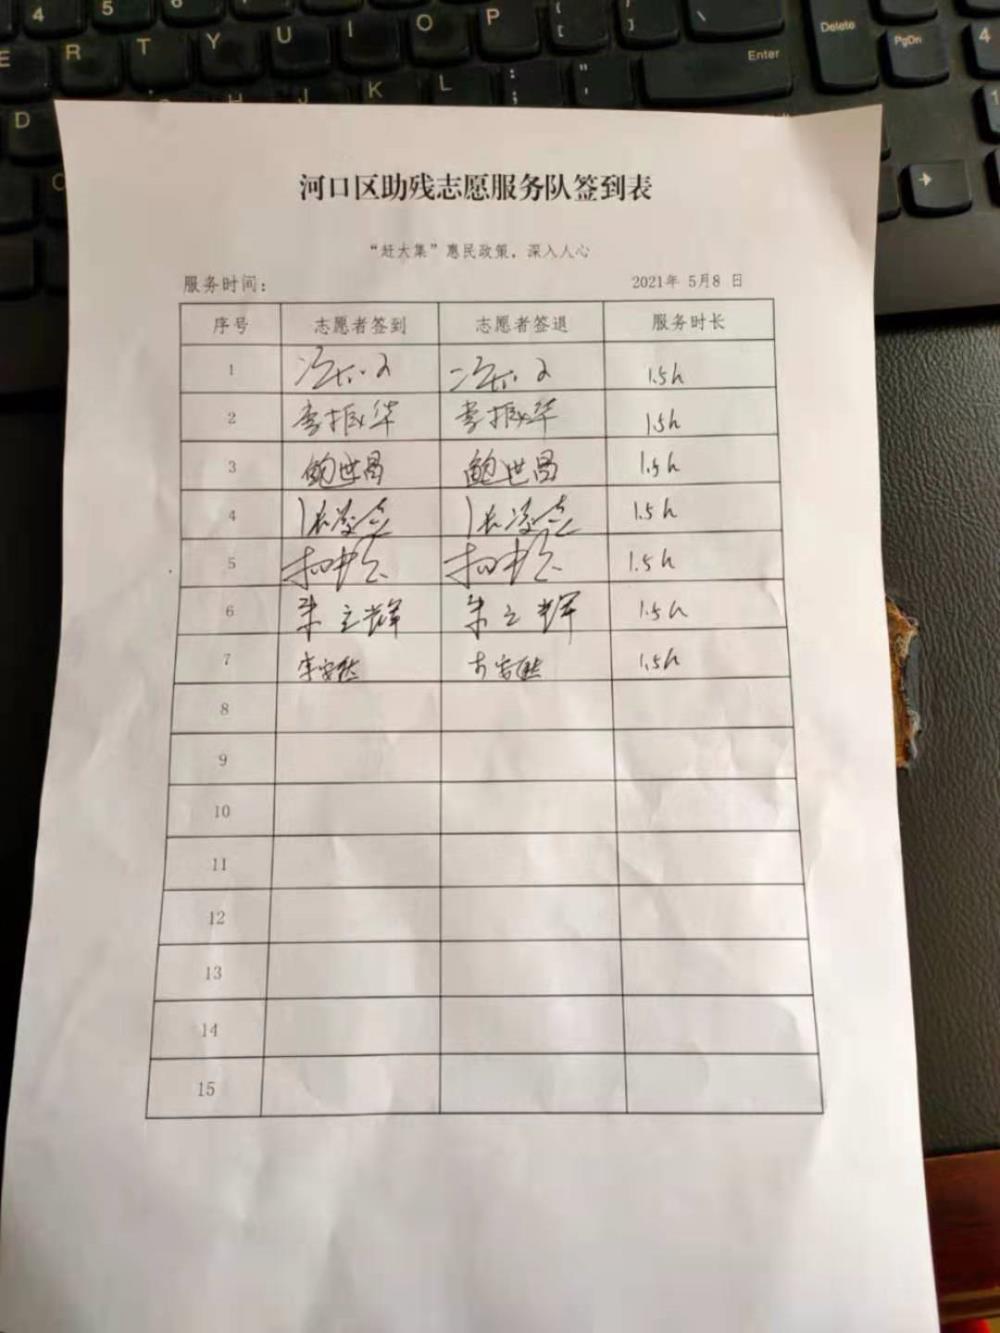 4 5 6
E R T Y U I O P [ { ] } \ Delete PgDn 4
Enter
D H J K L ; : ' "
河口区助残志愿服务队签到表
“赶大集”惠民政策，深入人心
服务时间： 2021年 5月8 日
序号 志愿者签到 志愿者签退 服务时长
1 1.5h
2 李振华 李振华 1.5h
3 鲍世昌 鲍世昌 1.5h
4 1.5h
5 1.5h
6 朱立辉 朱立辉 1.5h
7 1.5h
8
9
10
11
12
13
14
15